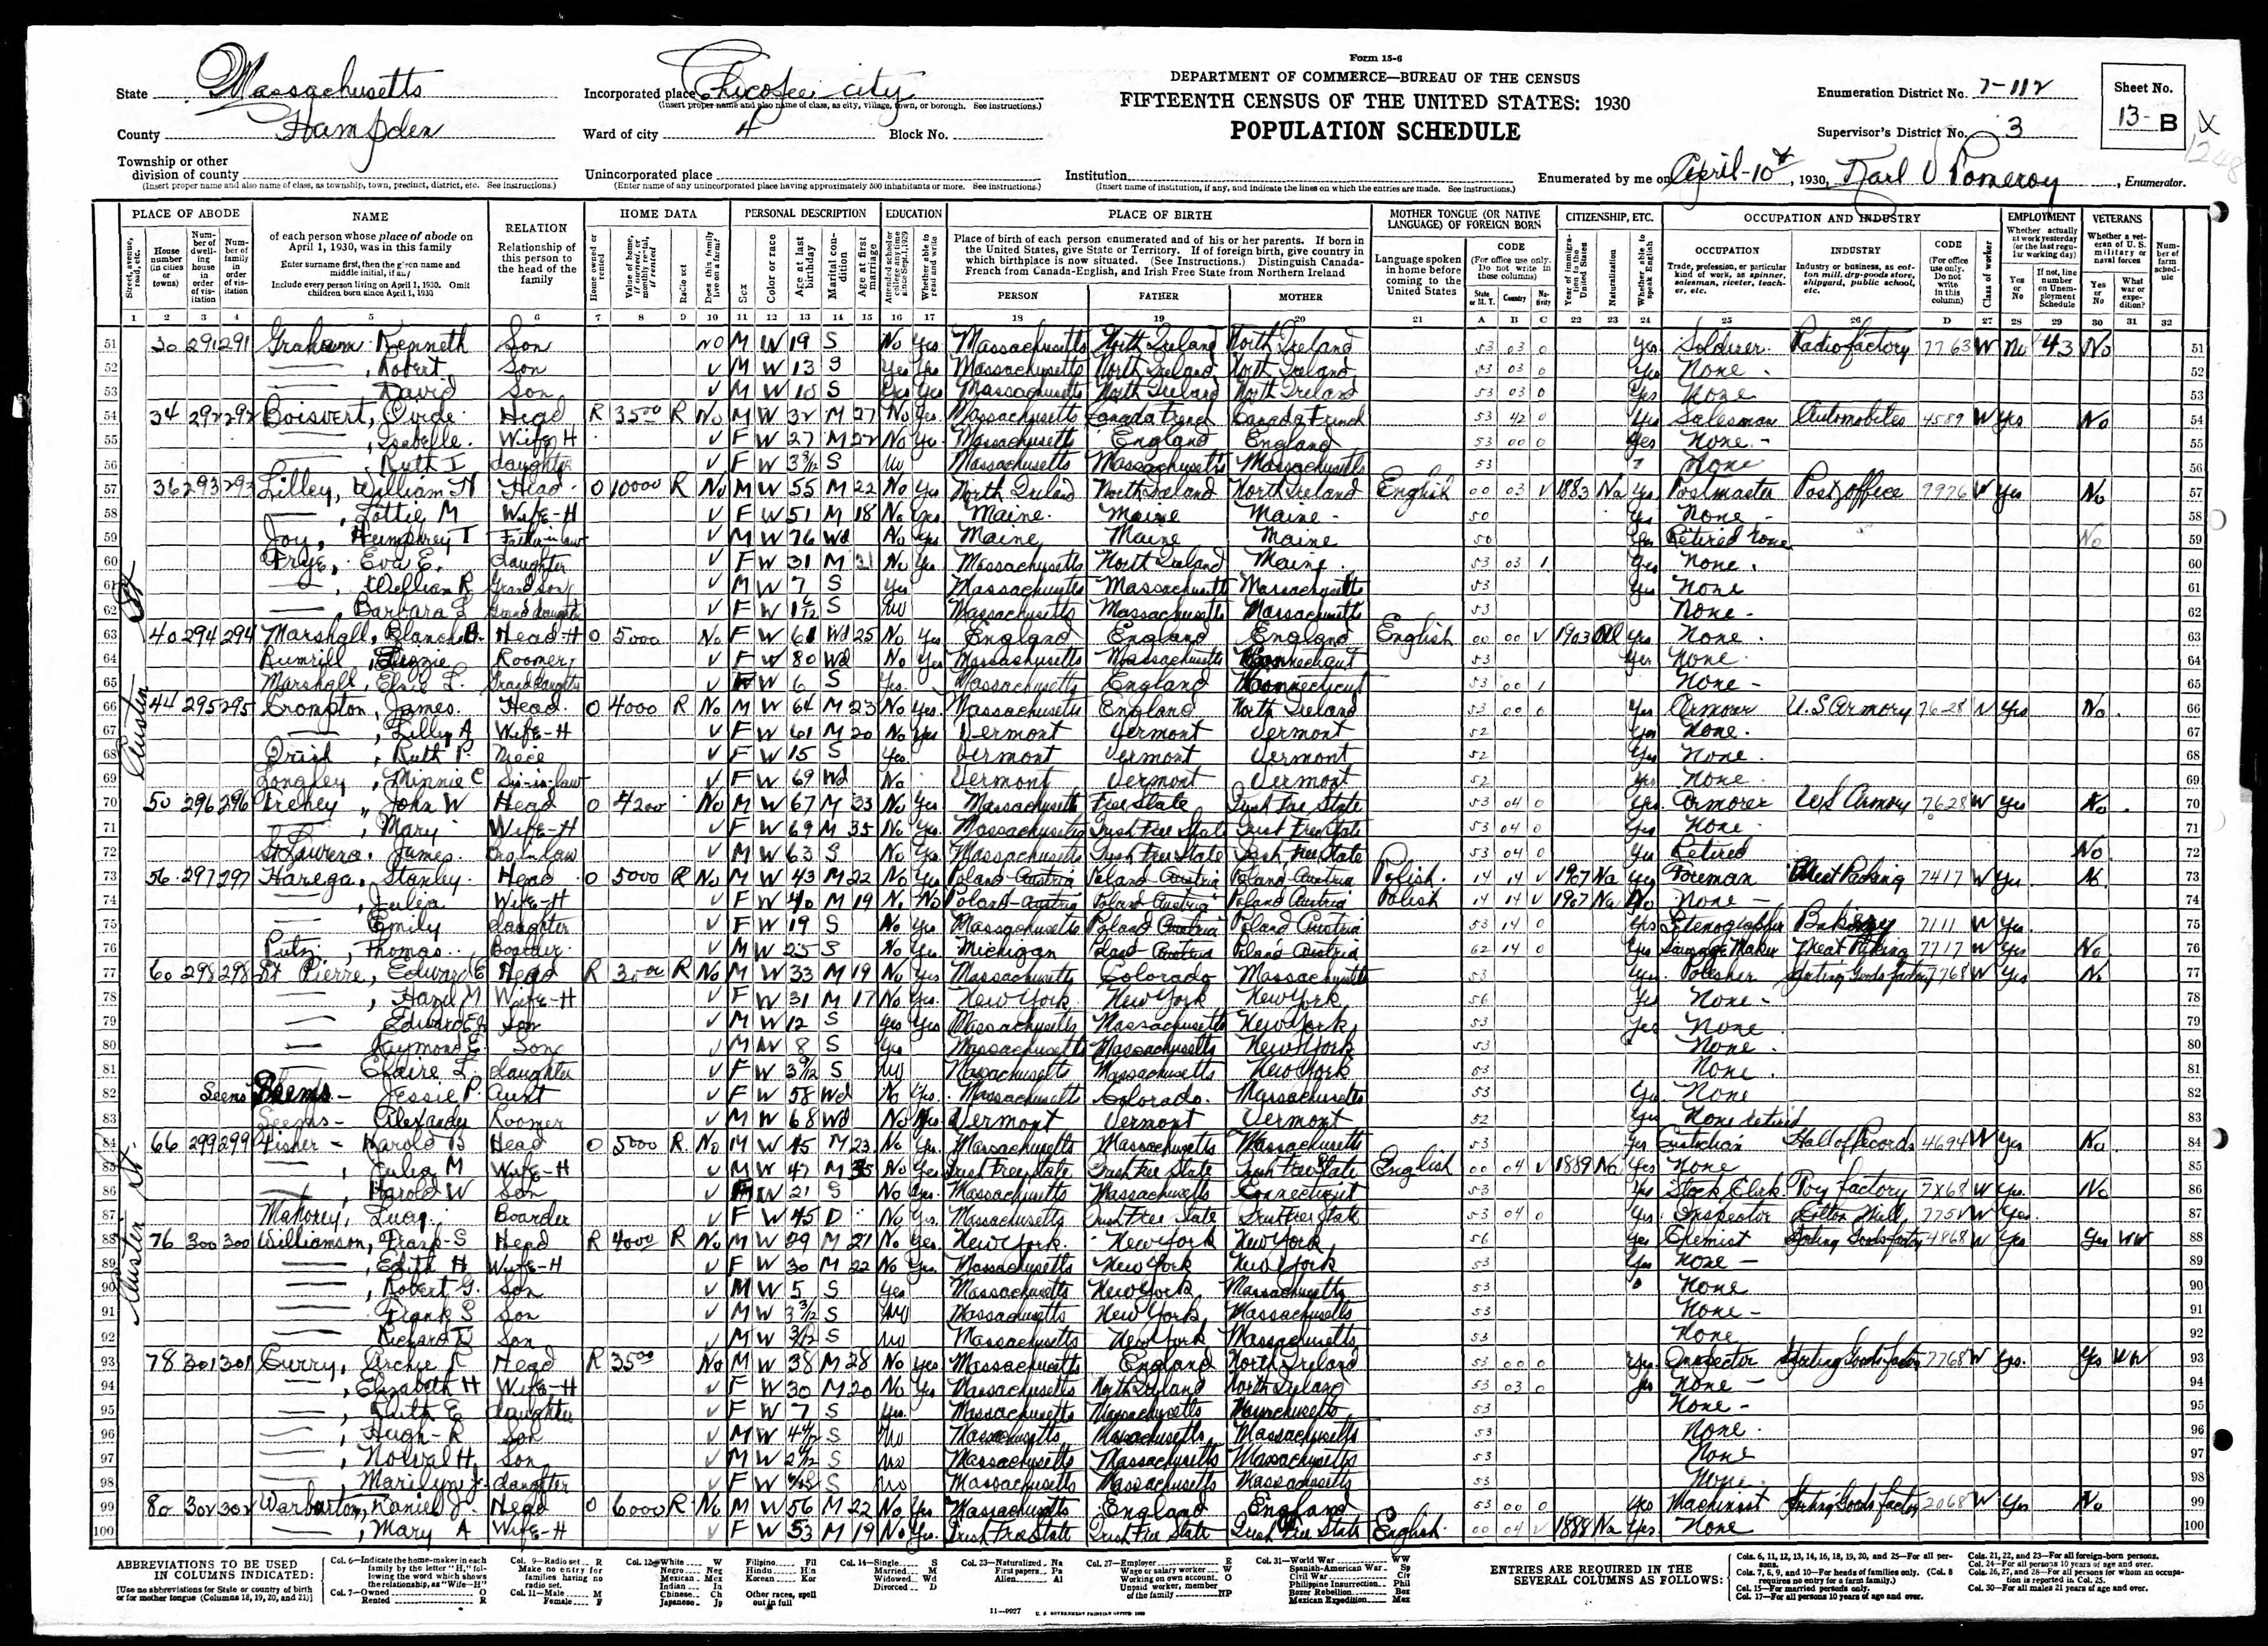 Form 15-6
DEPARTMENT OF COMMERCE—BUREAU OF THE CENSUS
FIFTEENTH CENSUS OF THE UNITED STATES: 1930
POPULATION SCHEDULE
State Massachusetts
County Hampden
Township or other division of county
(Insert proper name and also name of class, as township, town, precinct, district, etc. See instructions.)
Incorporated place Chicopee city
(Insert proper name and also name of class, as city, village, town, or borough. See instructions.)
Ward of city 4 Block No.
Unincorporated place
(Enter name of any unincorporated place having approximately 500 inhabitants or more. See instructions.)
Institution
(Insert name of institution, if any, and indicate the lines on which the entries are made. See instructions.)
Enumeration District No. 7-112
Supervisor's District No. 3
Sheet No. 13- B
Enumerated by me on April-10, 1930, Karl Pomeroy, Enumerator.
PLACE OF ABODE NAME RELATION HOME DATA PERSONAL DESCRIPTION EDUCATION PLACE OF BIRTH MOTHER TONGUE (OR NATIVE LANGUAGE) OF FOREIGN BORN CITIZENSHIP, ETC. OCCUPATION AND INDUSTRY EMPLOYMENT VETERANS
51 30 291 291 Graham Kenneth Son NO M W 19 S No Yes Massachusetts North Ireland North Ireland 53 03 0 Yes Solderer Radio factory 7763 W No 43 No 51
52 , Robert Son M W 13 S Yes Massachusetts North Ireland North Ireland 53 03 0 Yes None 52
53 David Son M W 10 S Yes Yes Massachusetts North Ireland North Ireland 53 03 0 Yes None 53
54 34 292 292 Boisvert, Ovide Head R 35 00 R No M W 32 M 27 No Yes Massachusetts Canada French Canada French 53 42 0 Yes Salesman Automobiles 4589 W Yes No 54
55 , Isabelle Wife-H F W 27 M 22 No Yes Massachusetts England England 53 00 0 Yes None 55
56 Ruth I daughter F W S No Massachusetts Massachusetts Massachusetts 53 None 56
57 36 293 293 Lilley, William H Head O 10000 R No M W 55 M 22 No Yes North Ireland North Ireland North Ireland English 00 03 V 1883 Na Yes Postmaster Post office 9926 W Yes No 57
58 , Lottie M Wife-H F W 51 M 18 No Yes Maine Maine Maine 50 Yes None 58
59 Joy, Humphrey T Father in law M W 76 Wd No Yes Maine Maine Maine 50 Yes Retired None No 59
60 Frye, Eva E. daughter F W 31 M 21 No Yes Massachusetts North Ireland Maine 53 03 1 Yes None 60
61 , William R Grand Son M W 7 S Yes Massachusetts Massachusetts Massachusetts 53 Yes None 61
62 , Barbara Grand daughter F W S No Massachusetts Massachusetts Massachusetts 53 None 62
63 40 294 294 Marshall, Blanche Head-H O 5000 No F W 61 Wd 25 No Yes England England England English 00 00 V 1903 Al Yes None 63
64 Rumrill, Lizzie Roomer F W 80 Wd No Yes Massachusetts Massachusetts Connecticut 53 Yes None 64
65 Marshall, Elsie L. Grand daughter W 6 S Yes Massachusetts England Connecticut 53 00 1 None 65
66 44 295 295 Crompton, James Head O 4000 R No M W 64 M 23 No Yes Massachusetts England North Ireland 53 00 0 Yes Armorer U.S Armory 7628 W Yes No 66
67 , Lilly A Wife-H F W 61 M 20 No Yes Vermont Vermont Vermont 52 Yes None 67
68 Ruth P. Niece F W 15 S Yes Vermont Vermont Vermont 52 Yes None 68
69 Longley, Minnie C Sis-in-law F W 69 Wd No Vermont Vermont Vermont 52 Yes None 69
70 50 296 296 John W Head O 4200 No M W 67 M 33 No Yes Massachusetts Free State Irish Free State 53 04 0 Yes Armorer US Armory 7628 W Yes No 70
71 , Mary Wife-H F W 69 M 35 No Yes Massachusetts Irish Free State Irish Free State 53 04 0 Yes None 71
72 James Bro in law M W 63 S No Yes Massachusetts Irish Free State Irish Free State 53 04 0 Yes Retired No 72
73 56 297 297 Harega, Stanley Head O 5000 R No M W 43 M 22 No Yes Poland Austria Poland Austria Poland Austria Polish 14 14 V 1907 Na Yes Foreman Meat Packing 7417 W Yes No 73
74 , Julia Wife-H F W 40 M 19 No No Poland-Austria Poland Austria Poland Austria Polish 14 14 V 1907 Na No None 74
75 Emily daughter F W 19 S No Yes Massachusetts Poland Austria Poland Austria 53 14 0 Yes Stenographer Bakery 7111 W Yes 75
76 Thomas Boarder M W 25 S No Yes Michigan Poland Austria Poland Austria 62 14 0 Yes Sausage Maker Meat Packing 7717 W Yes No 76
77 60 298 298 St Pierre, Edward E Head R 30 00 R No M W 33 M 19 No Yes Massachusetts Colorado Massachusetts 53 Yes Polisher Sporting Goods factory 7768 W Yes No 77
78 , Hazel M Wife-H F W 31 M 17 No Yes New York New York New York 56 Yes None 78
79 Edward E Jr Son M W 12 S Yes Yes Massachusetts Massachusetts New York 53 Yes None 79
80 Raymond E. Son M W 8 S Yes Massachusetts Massachusetts New York 53 None 80
81 Claire L. daughter F W S No Massachusetts Massachusetts New York 53 None 81
82 Seems Jessie P. Aunt F W 58 Wd No Yes Massachusetts Colorado Massachusetts 53 Yes None 82
83 Seems- Alexander Roomer M W 68 Wd No Yes Vermont Vermont Vermont 52 Yes None retired 83
84 66 299 299 Fisher - Harold B Head O 5000 R No M W 45 M 23 No Yes Massachusetts Massachusetts Massachusetts 53 Yes Custodian Hall of Records 4694 W Yes No 84
85 , Julia M Wife-H M W 47 M 25 No Yes Irish Free State Irish Free State Irish Free State English 00 04 V 1889 Na Yes None 85
86 Harold W Son W 21 S No Yes Massachusetts Massachusetts Connecticut 53 Yes Stock Clerk Toy factory 7X68 W Yes No 86
87 Mahoney, Lucy Boarder F W 45 D No Yes Massachusetts Irish Free State Irish Free State 53 04 0 Yes Inspector Cotton Mill 7751 W Yes 87
88 76 300 300 Williamson, Frank S Head R 40 00 R No M W 29 M 21 No Yes New York New York New York 56 Yes Chemist Sporting Goods factory 4868 W Yes Yes WW 88
89 , Edith H Wife-H F W 30 M 22 No Yes Massachusetts New York New York 53 Yes None 89
90 , Robert G. Son M W 5 S Yes Massachusetts New York Massachusetts 53 None 90
91 Frank S Son M W 3 3/12 S No Massachusetts New York Massachusetts 53 None 91
92 Richard Son M W 3/12 S No Massachusetts New York Massachusetts 53 None 92
93 78 301 301 Curry, Archie R Head R 35 00 No M W 38 M 28 No Yes Massachusetts England North Ireland 53 00 0 Yes Inspector Sporting Goods factory 7768 W Yes Yes WW 93
94 , Elizabeth H Wife-H F W 30 M 20 No Yes Massachusetts North Ireland North Ireland 53 03 0 Yes None 94
95 , Edith E daughter F W 7 S Yes Massachusetts Massachusetts Massachusetts 53 None 95
96 , Hugh R Son M W S No Massachusetts Massachusetts Massachusetts 53 None 96
97 , Norval H Son M W S No Massachusetts Massachusetts Massachusetts 53 None 97
98 , Marilyn J. daughter F W S No Massachusetts Massachusetts Massachusetts 53 None 98
99 80 302 302 Warburton, Daniel J. Head O 6000 R No M W 56 M 22 No Yes Massachusetts England England 53 00 0 Yes Machinist Sporting Goods factory 2068 W Yes No 99
100 , Mary A Wife-H F W 53 M 19 No Yes Irish Free State Irish Free State Irish Free State English 00 04 V 1888 Na Yes None 100
Austin St
Austin St.
ABBREVIATIONS TO BE USED IN COLUMNS INDICATED:
[Use no abbreviations for State or country of birth or for mother tongue (Columns 18, 19, 20, and 21)]
Col. 6—Indicate the home-maker in each family by the letter "H," following the word which shows the relationship, as "Wife—H"
Col. 7—Owned O Rented R
Col. 9—Radio set R Make no entry for families having no radio set.
Col. 11—Male M Female F
Col. 12—White W Negro Neg Mexican Mex Indian In Chinese Ch Japanese Jp
Filipino Fil Hindu Hin Korean Kor Other races, spell out in full
Col. 14—Single S Married M Widowed Wd Divorced D
Col. 23—Naturalized Na First papers Pa Alien Al
Col. 27—Employer E Wage or salary worker W Working on own account O Unpaid worker, member of the family NP
Col. 31—World War WW Spanish-American War Sp Civil War Civ Philippine Insurrection Phil Boxer Rebellion Box Mexican Expedition Mex
ENTRIES ARE REQUIRED IN THE SEVERAL COLUMNS AS FOLLOWS:
Cols. 6, 11, 12, 13, 14, 16, 18, 19, 20, and 25—For all persons.
Cols. 7, 8, 9, and 10—For heads of families only. (Col. 8 requires no entry for a farm family.)
Col. 15—For married persons only.
Col. 17—For all persons 10 years of age and over.
Cols. 21, 22, and 23—For all foreign-born persons.
Col. 24—For all persons 10 years of age and over.
Cols. 26, 27, and 28—For all persons for whom an occupation is reported in Col. 25.
Col. 30—For all males 21 years of age and over.
11—9927 U. S. GOVERNMENT PRINTING OFFICE